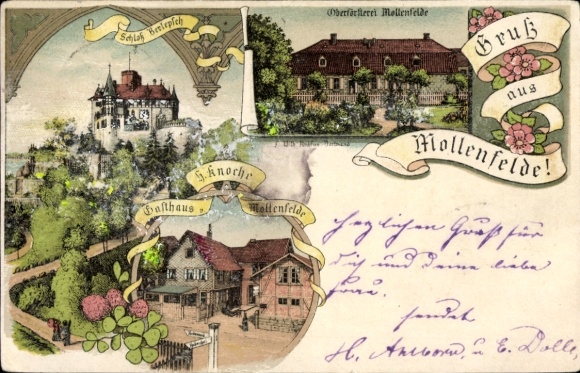 Schloß Berlepsch
Oberförsterei Mollenfelde
Gruß
aus
Mollenfelde!
H. Knoche
Gasthaus Mollenfelde
herzlichen Gruß für
dich und deine liebe
Frau.
sendet
H. u. E.